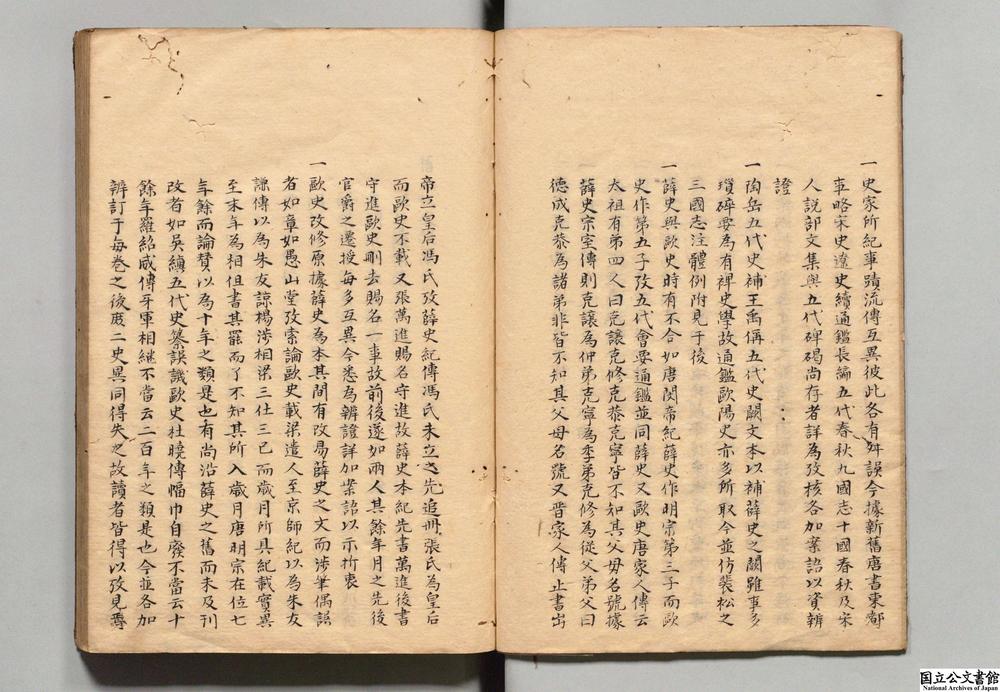 一史家所紀事蹟流傳互異彼此各有舛誤今據新舊唐書東都
事略宋史遼史續通鑑長編五代春秋九國志十國春秋及宋
人說部文集與五代碑碣尚存者詳為攷核各加案語以資辨
證
一陶岳五代史補王禹偁五代史闕文本以補薛史之闕雖事多
瑣碎要為有裨史學故通鑑歐陽史亦多所取今並仿裴松之
三國志注體例附見于後
一薛史與歐史時有不合如唐閔帝紀薛史作明宗第三子而歐
史作第五子攷五代會要通鑑並同薛史又歐史唐家人傳云
太祖有弟四人曰克讓克修克恭克寧皆不知其父母名號據
薛史宗室傳則克讓為仲弟克寧為季弟克修為從父弟父曰
德成克恭為諸弟非皆不知其父母名號又晋家人傳止書出
帝立皇后馮氏攷薛史紀傳馮氏未立之先追冊張氏為皇后
而歐史不載又張萬進賜名守進故薛史本紀先書萬進後書
守進歐史刪去賜名一事故前後遂如兩人其餘年月之先後
官爵之遷授每多互異今悉為辨證詳加案語以示折衷
一歐史改修原據薛史為本其間有改易薛史之文而涉筆偶誤
者如章如愚山堂攷索論歐史載梁遣人至京師紀以為朱友
謙傳以為朱友諒楊涉相梁三仕三已而歲月所具紀載實異
至末年為相但書其罷而了不知其所入歲月唐明宗在位七
年餘而論贊以為十年之類是也有尚沿薛史之舊而未及刊
改者如吳縝五代史纂誤譏歐史杜曉傳幅巾自廢不當云十
餘年羅紹威傳牙軍相繼不當云二百年之類是也今並各加
辨訂于每卷之後庶二史異同得失之故讀者皆得以攷見焉
国立公文書館
National Archives of Japan